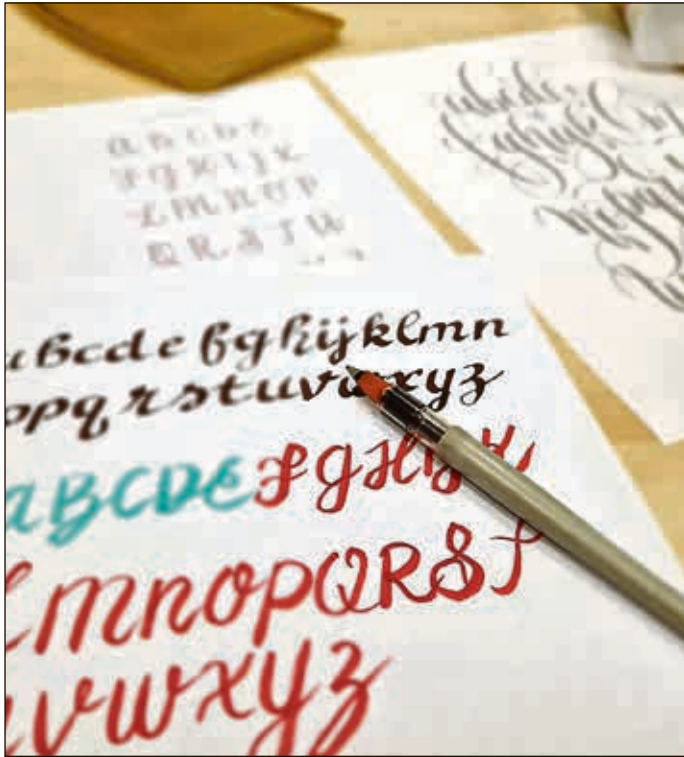 A B C D E
F G H I J K
L M N O P
Q R S T U
abcde
fghijkl
abcdefghijklmn
opqrstuvwxyz
ABCDEFGHIJK
LMNOPQRST
UVWXYZ